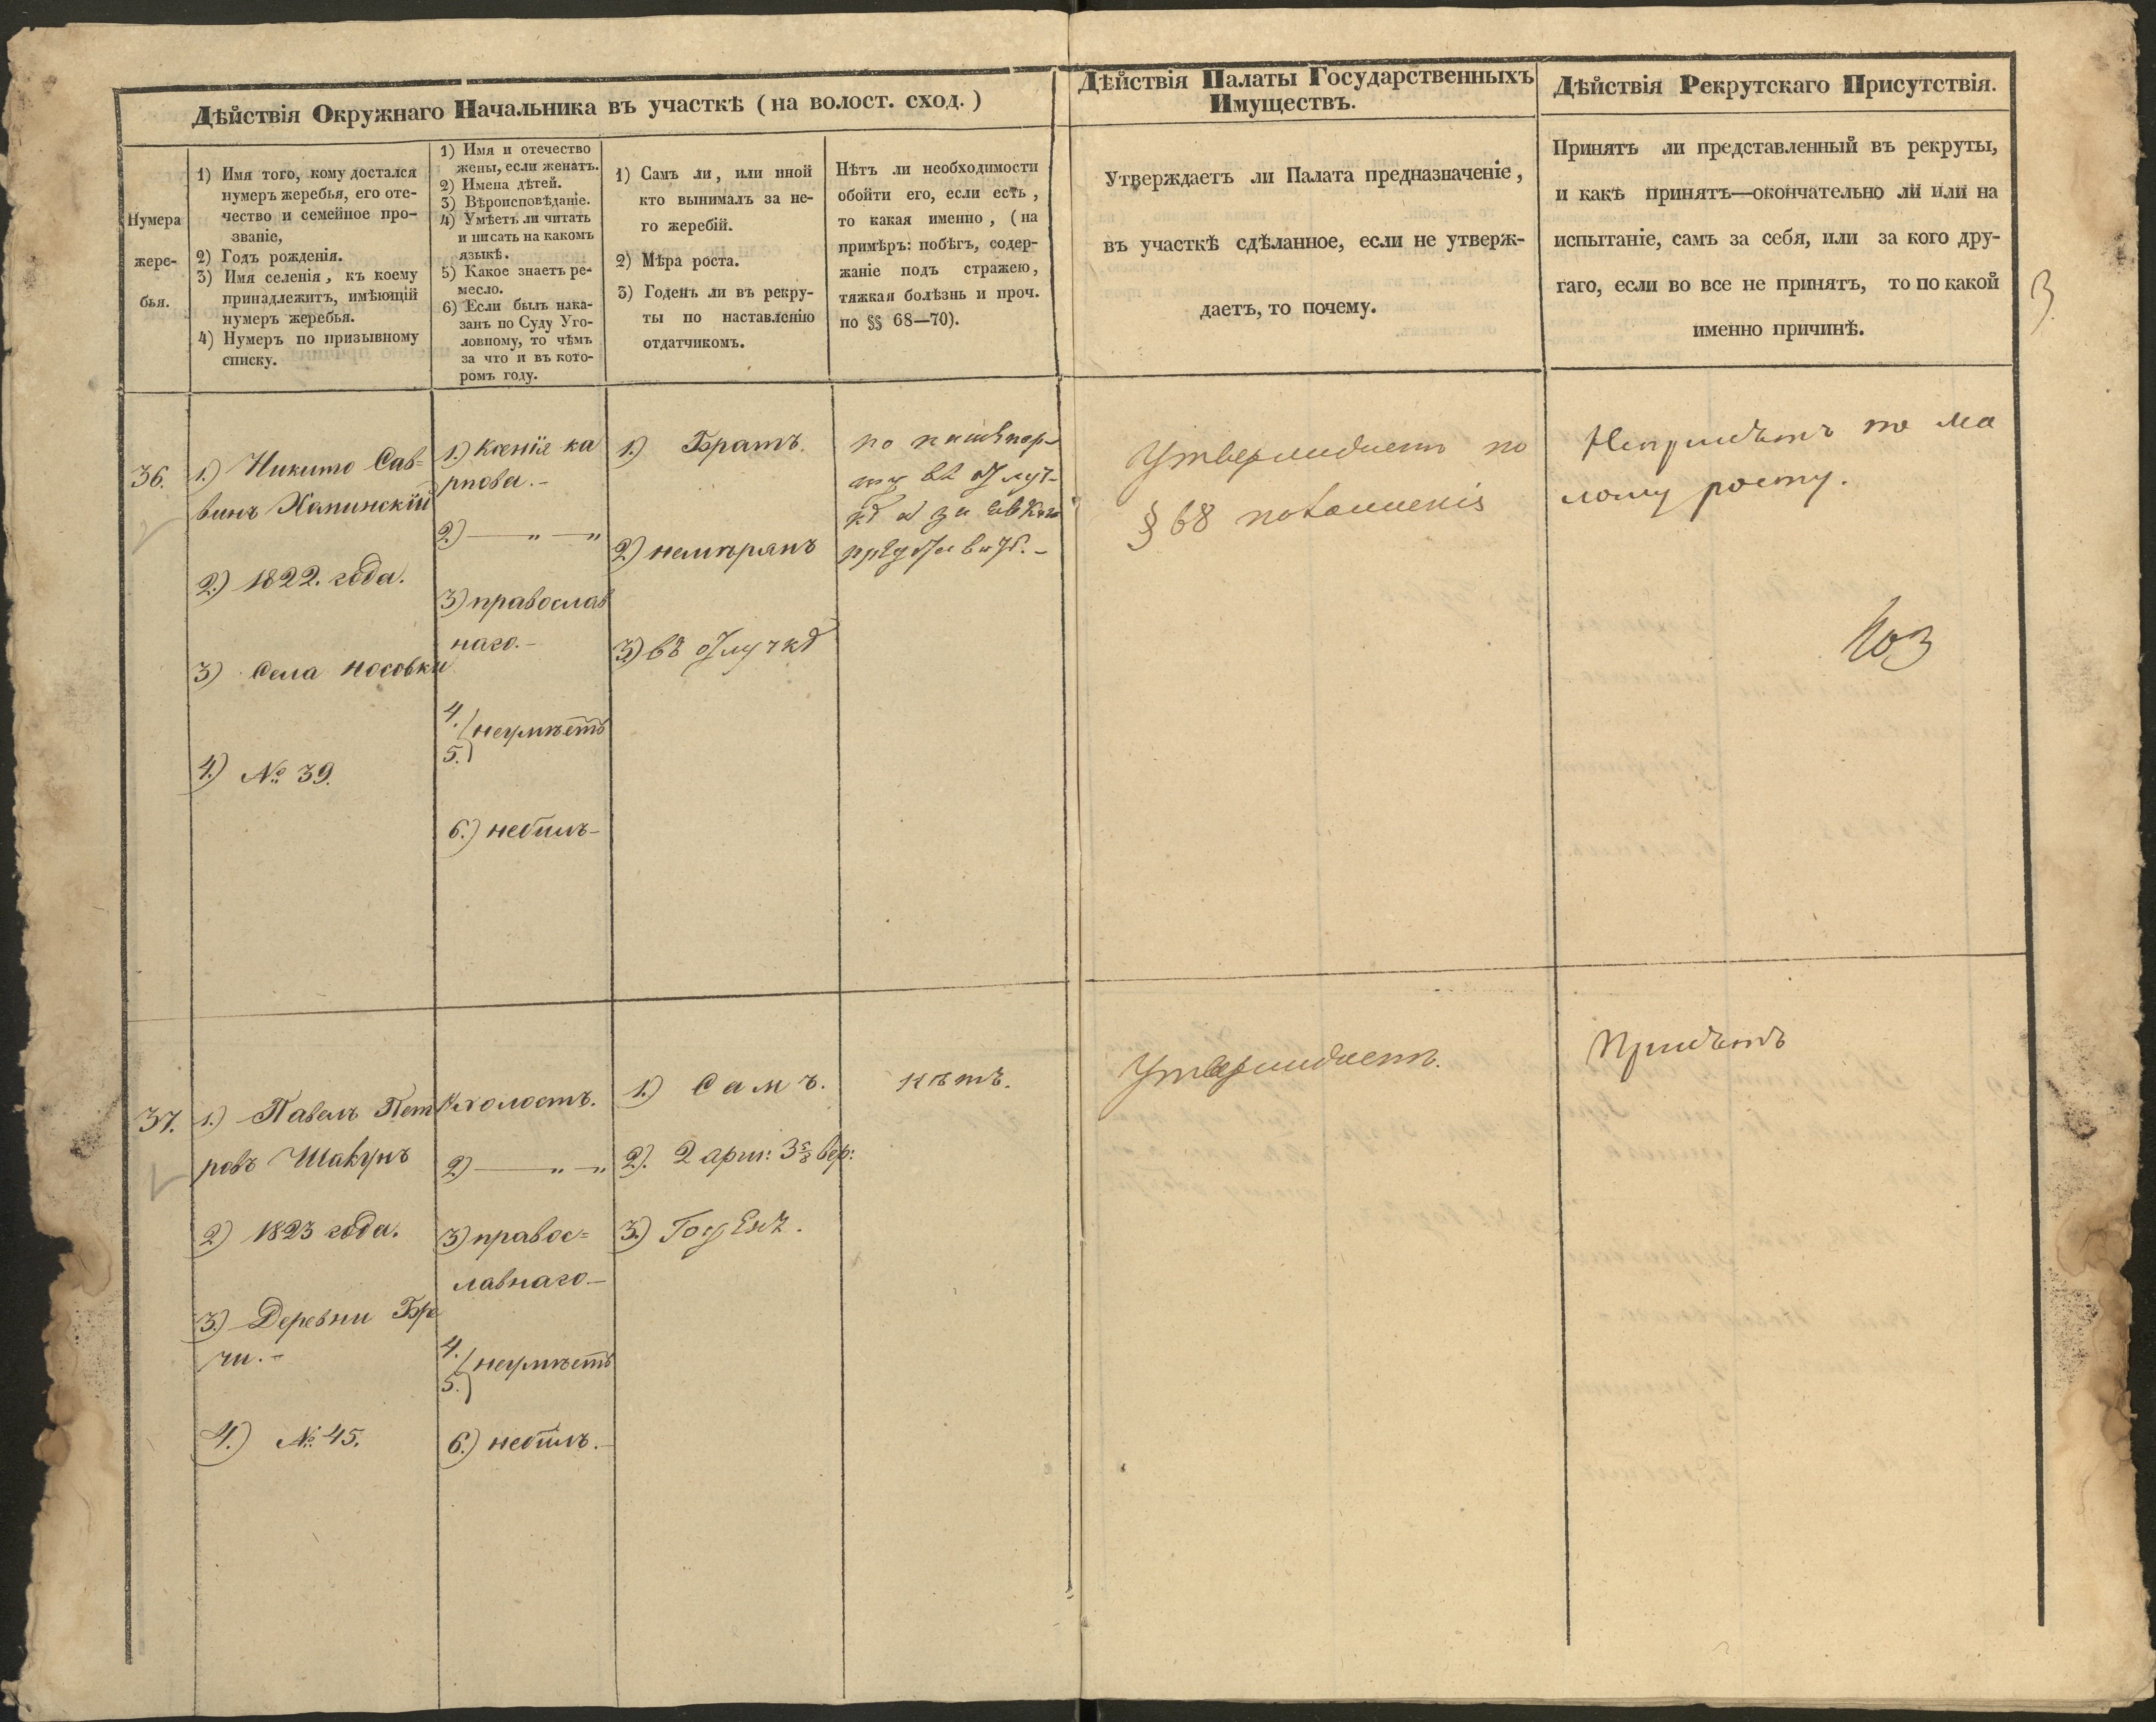 Дѣйствія Окружнаго Начальника въ участкѣ (на волост. сход.)
Дѣйствія Палаты Государственныхъ
Имуществъ.
Дѣйствія Рекрутскаго Присутствія.
Нумера
жере-
бья.
1) Имя того, кому достался
нумеръ жеребья, его оте-
чество и семейное про-
званіе,
2) Годъ рожденія.
3) Имя селенія, къ коему
принадлежитъ, имѣющій
нумеръ жеребья.
4) Нумеръ по призывному
списку.
1) Имя и отечество
жены, если женатъ.
2) Имена дѣтей.
3) Вѣроисповѣданіе.
4) Умѣетъ ли читать
и писать на какомъ
языкѣ.
5) Какое знаетъ ре-
месло.
6) Если былъ нака-
занъ по Суду Уго-
ловному, то чѣмъ
за что и въ кото-
ромъ году.
1) Самъ ли, или иной
кто вынималъ за не-
го жеребій.
2) Мѣра роста.
3) Годенъ ли въ рекру-
ты по наставленію
отдатчикомъ.
Нѣтъ ли необходимости
обойти его, если есть,
то какая именно, (на
примѣръ: побѣгъ, содер-
жаніе подъ стражею,
тяжкая болѣзнь и проч.
по §§ 68—70).
Утверждаетъ ли Палата предназначеніе,
въ участкѣ сдѣланное, если не утверж-
даетъ, то почему.
Принятъ ли представленный въ рекруты,
и какъ принятъ—окончательно ли или на
испытаніе, самъ за себя, или за кого дру-
гаго, если во все не принятъ, то по какой
именно причинѣ.
3
36.
1.) Никито Сав=
винъ Хапинскій
2.) 1822. года.
3) Села Носовки
4.) № 39.
1.) Ксенія Ка
рпова.-
2.) — „ — „
3) православ
наго.-
4.
5.) неумѣетъ
6.) небылъ-
1.) Братъ.
2.) немѣрянъ
3) въ отлучкѣ
по пашпор-
ту въ отлуч-
кѣ
Утверждаетъ по
§ 68
Непринятъ по ма
лому росту.
37.
1.) Павелъ Пет
ровъ Шакунъ
2) 1823 года.
3.) Деревни
4.) № 45.
холостъ.
2) — „ — „
3) правос=
лавнаго-
4.
5.) неумѣетъ
6.) небылъ.-
1.) Самъ.
2.) 2 арш: 3 5/8 вер:
3.) Годенъ.
нѣтъ.
Утверждаетъ.
Принятъ